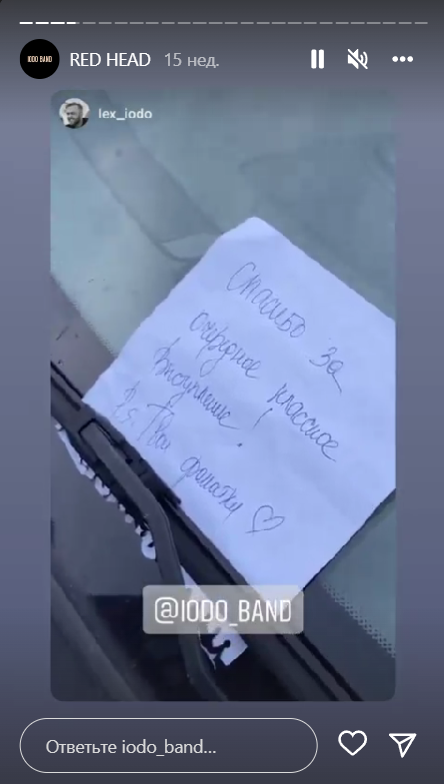 IODO BAND
RED HEAD 15 нед.
lex_iodo
Спасибо за
очередное классное
выступление!
Твои фанатки ♡
@IODO_BAND
Ответьте iodo_band...